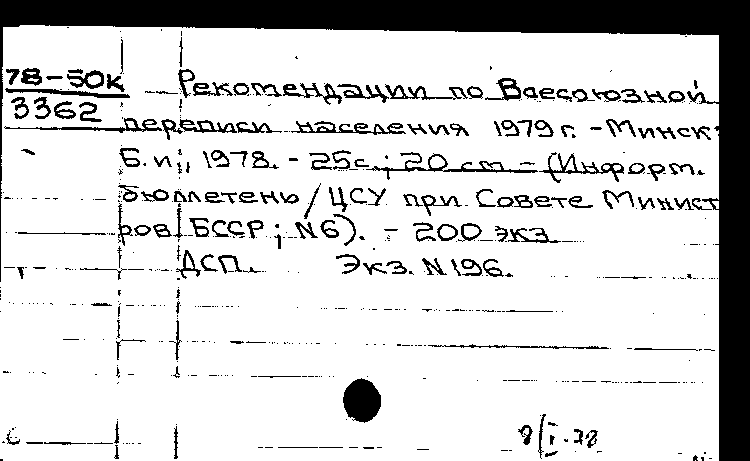 78-50к Рекомендации по Всесоюзной
3362 переписи населения 1979 г. - Минск:
Б.и., 1978. - 25 с.; 20 см - (Информ.
бюллетень / ЦСУ при Совете Минист
ров БССР; N6). - 200 экз.
ДСП. Экз. N 196.